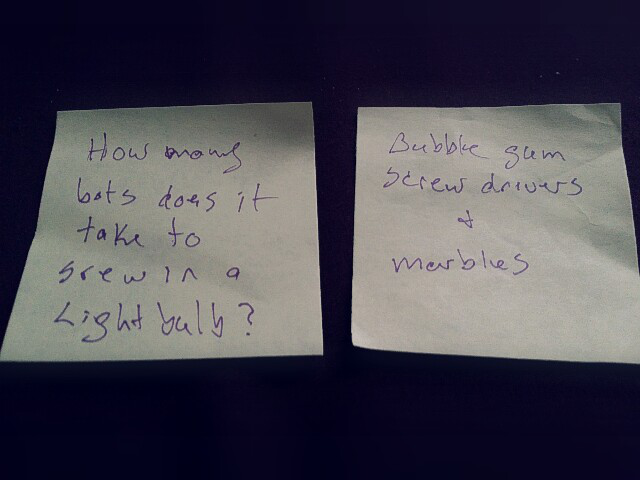 How many
bots does it
take to
srew in a
Light bulb?
Bubble gum
screw drivers
+
marbles